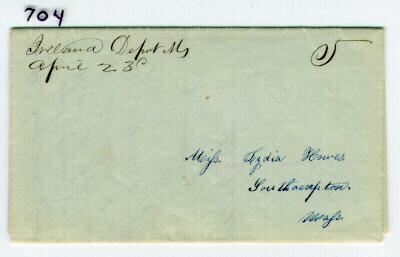 704
Ireland Depot Ms
April 23d
5
Miss. Lydia Howes.
Southampton.
Mass.